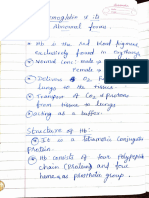 Haemoglobin & its
Abnormal forms.
Hb is the red blood pigment
exclusively found in erythrocy
Normal conc: male →
Female →
Delivers O2
lungs to the tissue.
Transport of CO2 & protons
from tissue to lungs
acting as a buffer.
Structure of Hb:
It is a tetrameric conjugated
Protein.
Hb consists of four polypeptide
chain (Protein) and four
heme as prosthetic group.